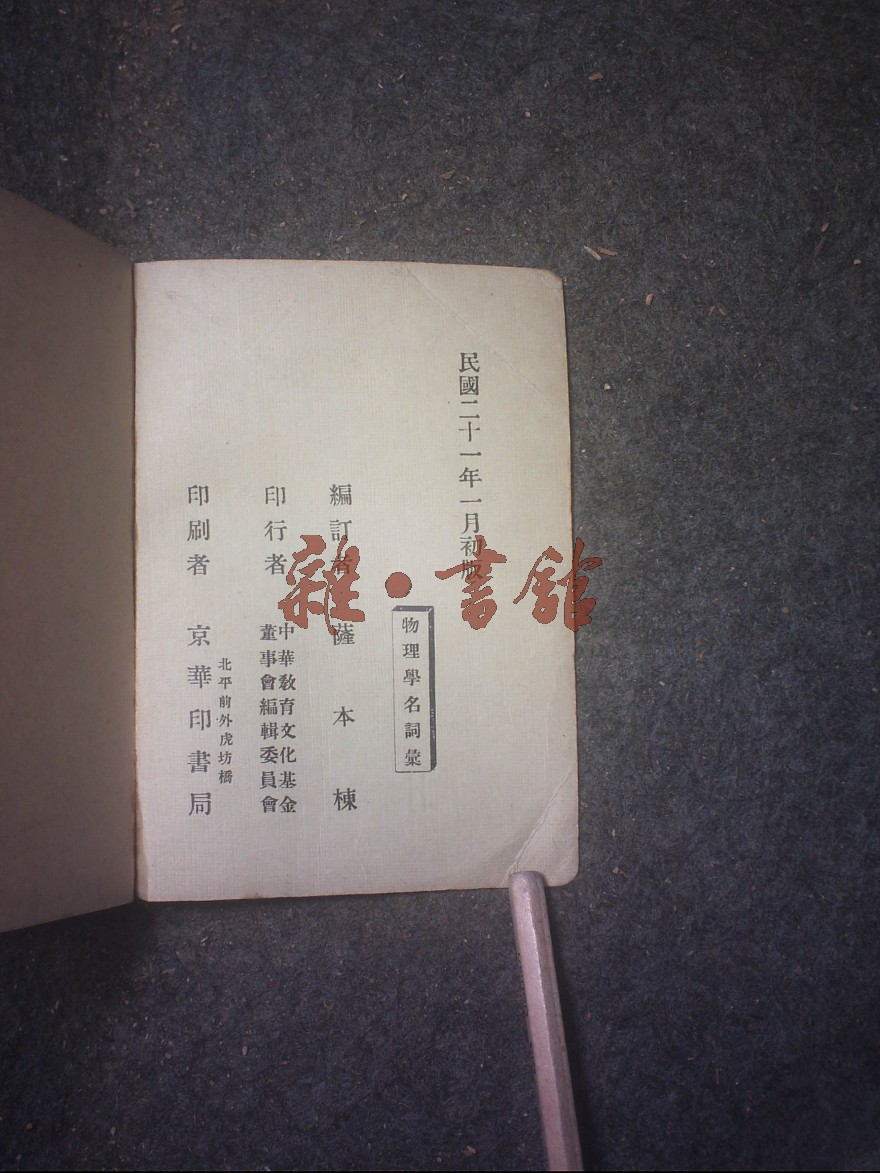 民國二十一年一月初版
物理學名詞彙
編訂者 薩本棟
印行者 中華教育文化基金
董事會編輯委員會
北平前外虎坊橋
印刷者 京華印書局
雜·書館